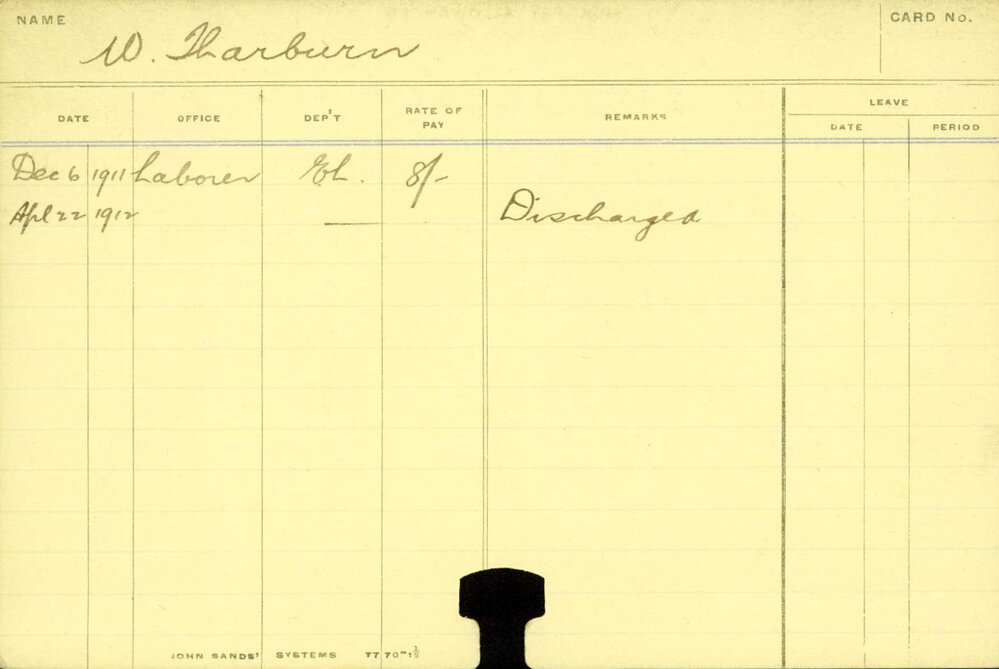 NAME
W. Tharburn
CARD No.
DATE OFFICE DEP'T RATE OF PAY REMARKS LEAVE
DATE PERIOD
Dec 6 1911 Laborer EL. 8/-
Apl 22 1912 — Discharged
JOHN SANDS' SYSTEMS 77 70ᵐ 1½